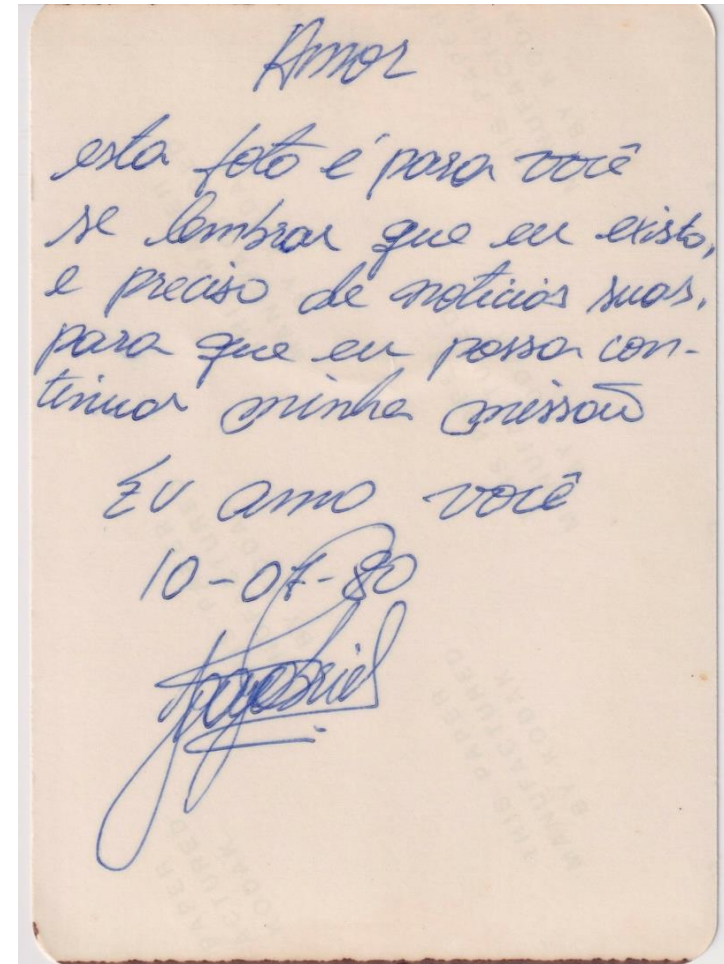 Amor
esta foto é para você
se lembrar que eu existo,
e preciso de noticias suas,
para que eu possa con-
tinuar minha missão
Eu amo você
10-07-80
THIS PAPER
MANUFACTURED
BY KODAK